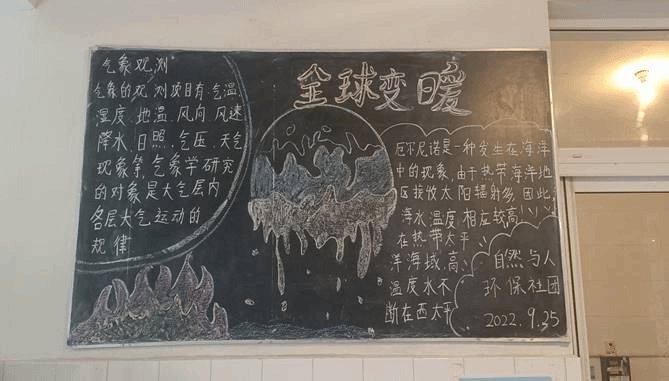 全球变暖
气象观测
气象的观测项目有:气温
湿度、地温、风向、风速
降水、日照、气压、天气
现象等,气象学研究
的对象是大气层内
各层大气运动的
规律
厄尔尼诺是一种发生在海洋
中的现象,由于热带海洋地
区接收太阳辐射多,因此,
海水温度相应较高
在热带太平
洋海域,高
温度水不
断在西太平
自然与人
环保社团
2022.9.25